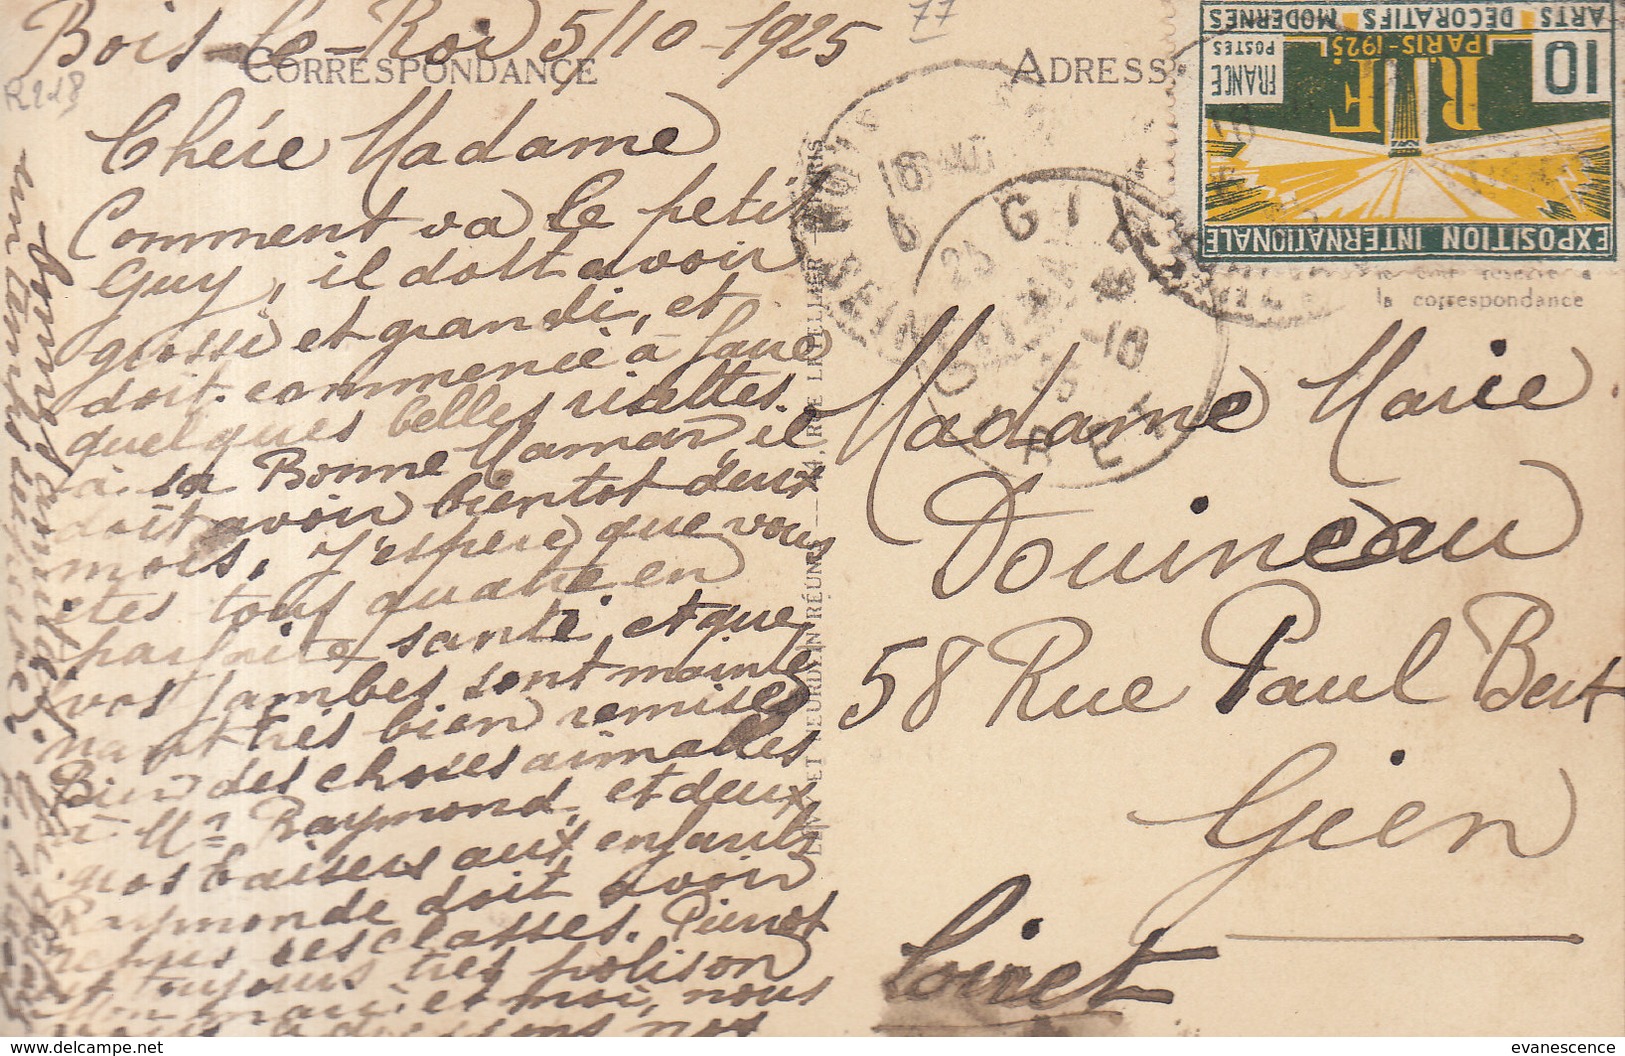 Bois-le-Roi 5/10-1925
77
R218
CORRESPONDANCE
ADRESSE
Chère Madame
Comment va le petit
Guy, il doit avoir
grossi et grandi, et
doit commencé à faire
quelques belles risettes.
à sa Bonne Maman, il
doit avoir bientot deux
mois, J'espère que vous
êtes tous quatre en
parfaite santé, et que
vos jambes sont mainte
nant très bien remises
Bien des choses aimables
à Mr Raymond, et deux
gros baisers aux enfants
Raymonde doit avoir
repris ses classes. Pierrot
est toujours très polison
Mon mari et moi, nous
vous adressons nos
Madame Marie
Douineau
58 Rue Paul Bert
Gien
Loiret
EXPOSITION INTERNATIONALE
ARTS DÉCORATIFS MODERNES
PARIS-1925
RF
FRANCE
POSTES
10
GIEN
LOIRET
la correspondance
evanescence